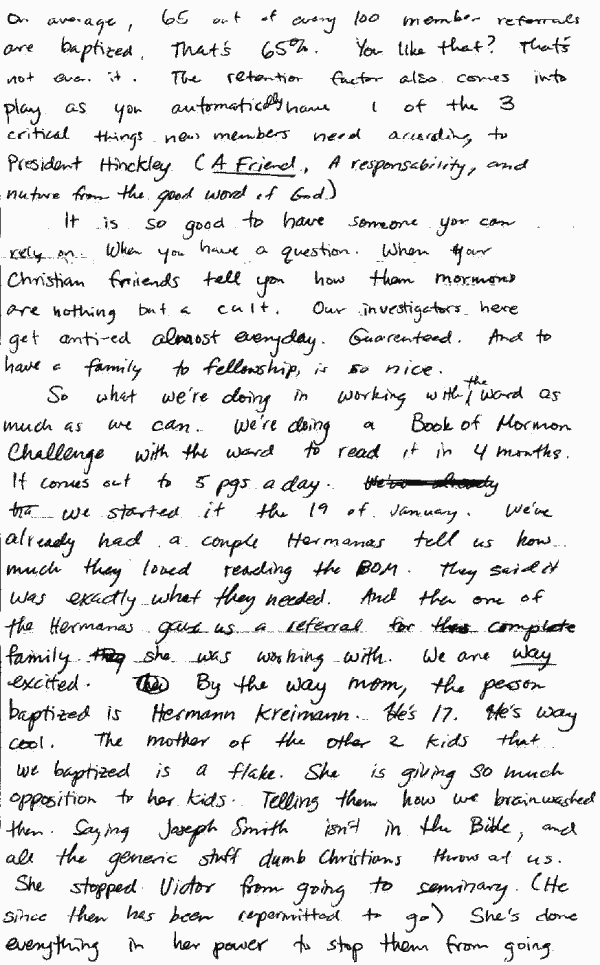 On average, 65 out of every 100 member referrals
are baptized. That's 65%. You like that? That's
not even it. The retention factor also comes into
play as you automatically have 1 of the 3
critical things new members need according to
President Hinckley (A Friend, A responsability, and
nuture from the good word of God.)
It is so good to have someone you can
rely on. When you have a question. When your
Christian friiends tell you how them mormons
are nothing but a cult. Our investigators here
get anti-ed almost everyday. Guarenteed. And to
have a family to fellowship, is so nice.
So what we're doing in working with the ward as
much as we can. We're doing a Book of Mormon
Challenge with the ward to read it in 4 months.
It comes out to 5 pgs a day. We've already
we started it the 19 of January. We've
already had a couple Hermanas tell us how
much they loved reading the BOM. They said it
was exactly what they needed. And then one of
the Hermanas gave us a referral for this complete
family they she was working with. We are way
excited. By the way mom, the person
baptized is Hermann Kreimann. He's 17. He's way
cool. The mother of the other 2 kids that
we baptized is a flake. She is giving so much
opposition to her kids. Telling them how we brainwashed
them. Saying Joseph Smith isn't in the Bible, and
all the generic stuff dumb Christians throw at us.
She stopped Victor from going to seminary. (He
since then has been repermitted to go) She's done
everything in her power to stop them from going